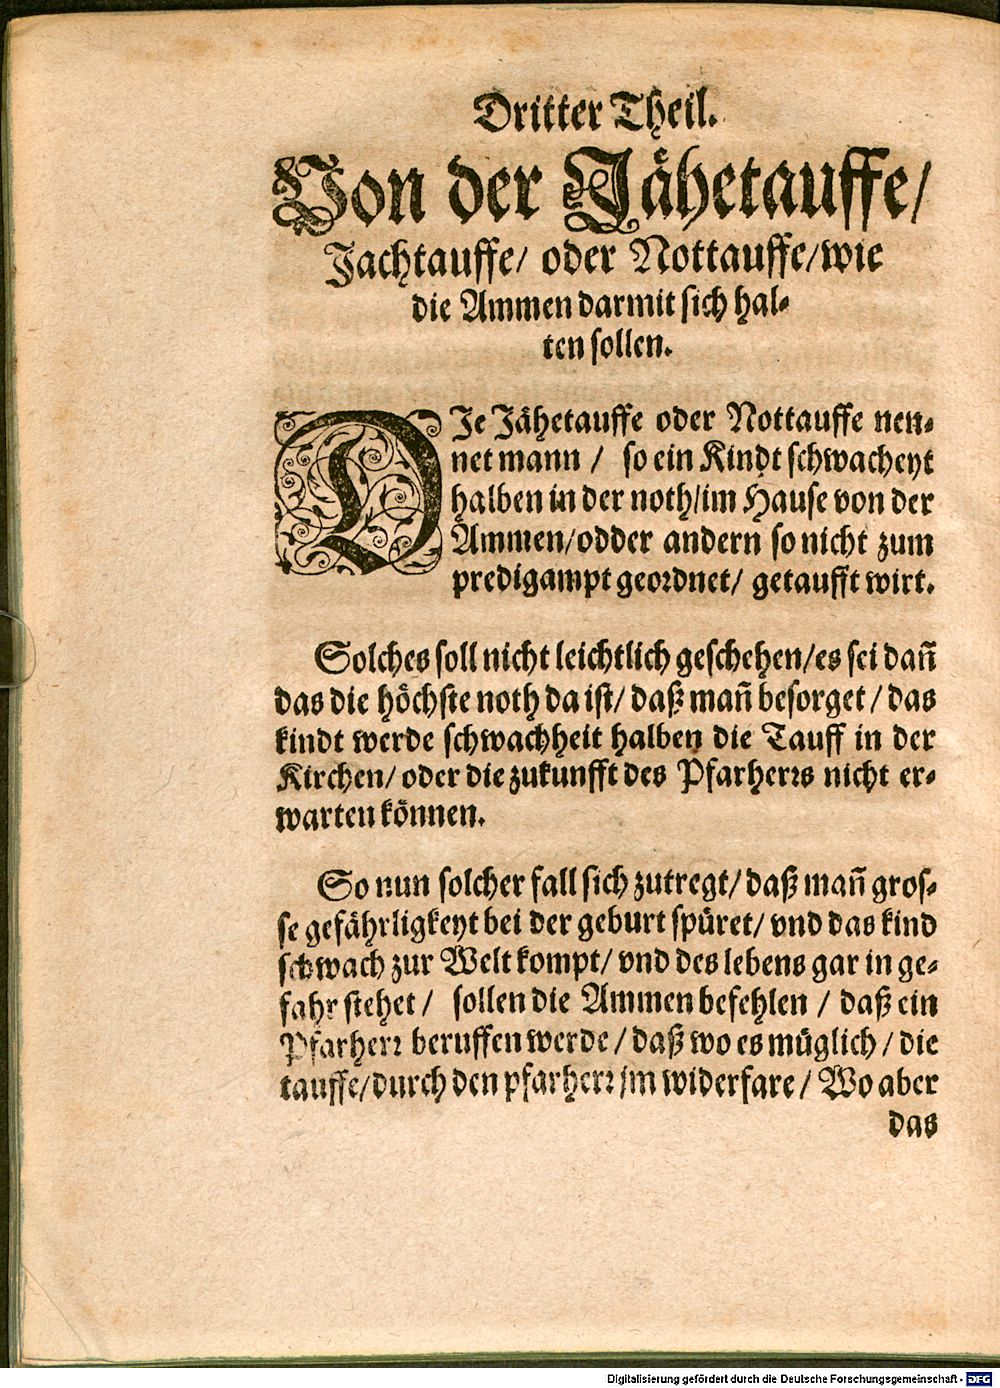 Dritter Theil.
Von der Jähetauffe/
Jachtauffe/ oder Nottauffe/wie
die Ammen darmit sich hal⸗
ten sollen.
DIe Jähetauffe oder Nottauffe nen⸗
net mann / so ein Kindt schwacheyt
halben in der noth/im Hause von der
Ammen/odder andern so nicht zum
predigampt geordnet/ getaufft wirt.
Solches soll nicht leichtlich geschehen/es sei dañ
das die höchste noth da ist/ daß mañ besorget / das
kindt werde schwachheit halben die Tauff in der
Kirchen/ oder die zukunfft des Pfarherrs nicht er⸗
warten können.
So nun solcher fall sich zutregt/ daß mañ gros⸗
se gefährligkeyt bei der geburt spüret/ vnd das kind
schwach zur Welt kompt/ vnd des lebens gar in ge⸗
fahr stehet / sollen die Ammen befehlen / daß ein
Pfarherr beruffen werde / daß wo es müglich / die
tauffe/durch den pfarherr jm widerfare / Wo aber
das
Digitalisierung gefördert durch die Deutsche Forschungsgemeinschaft - DFG